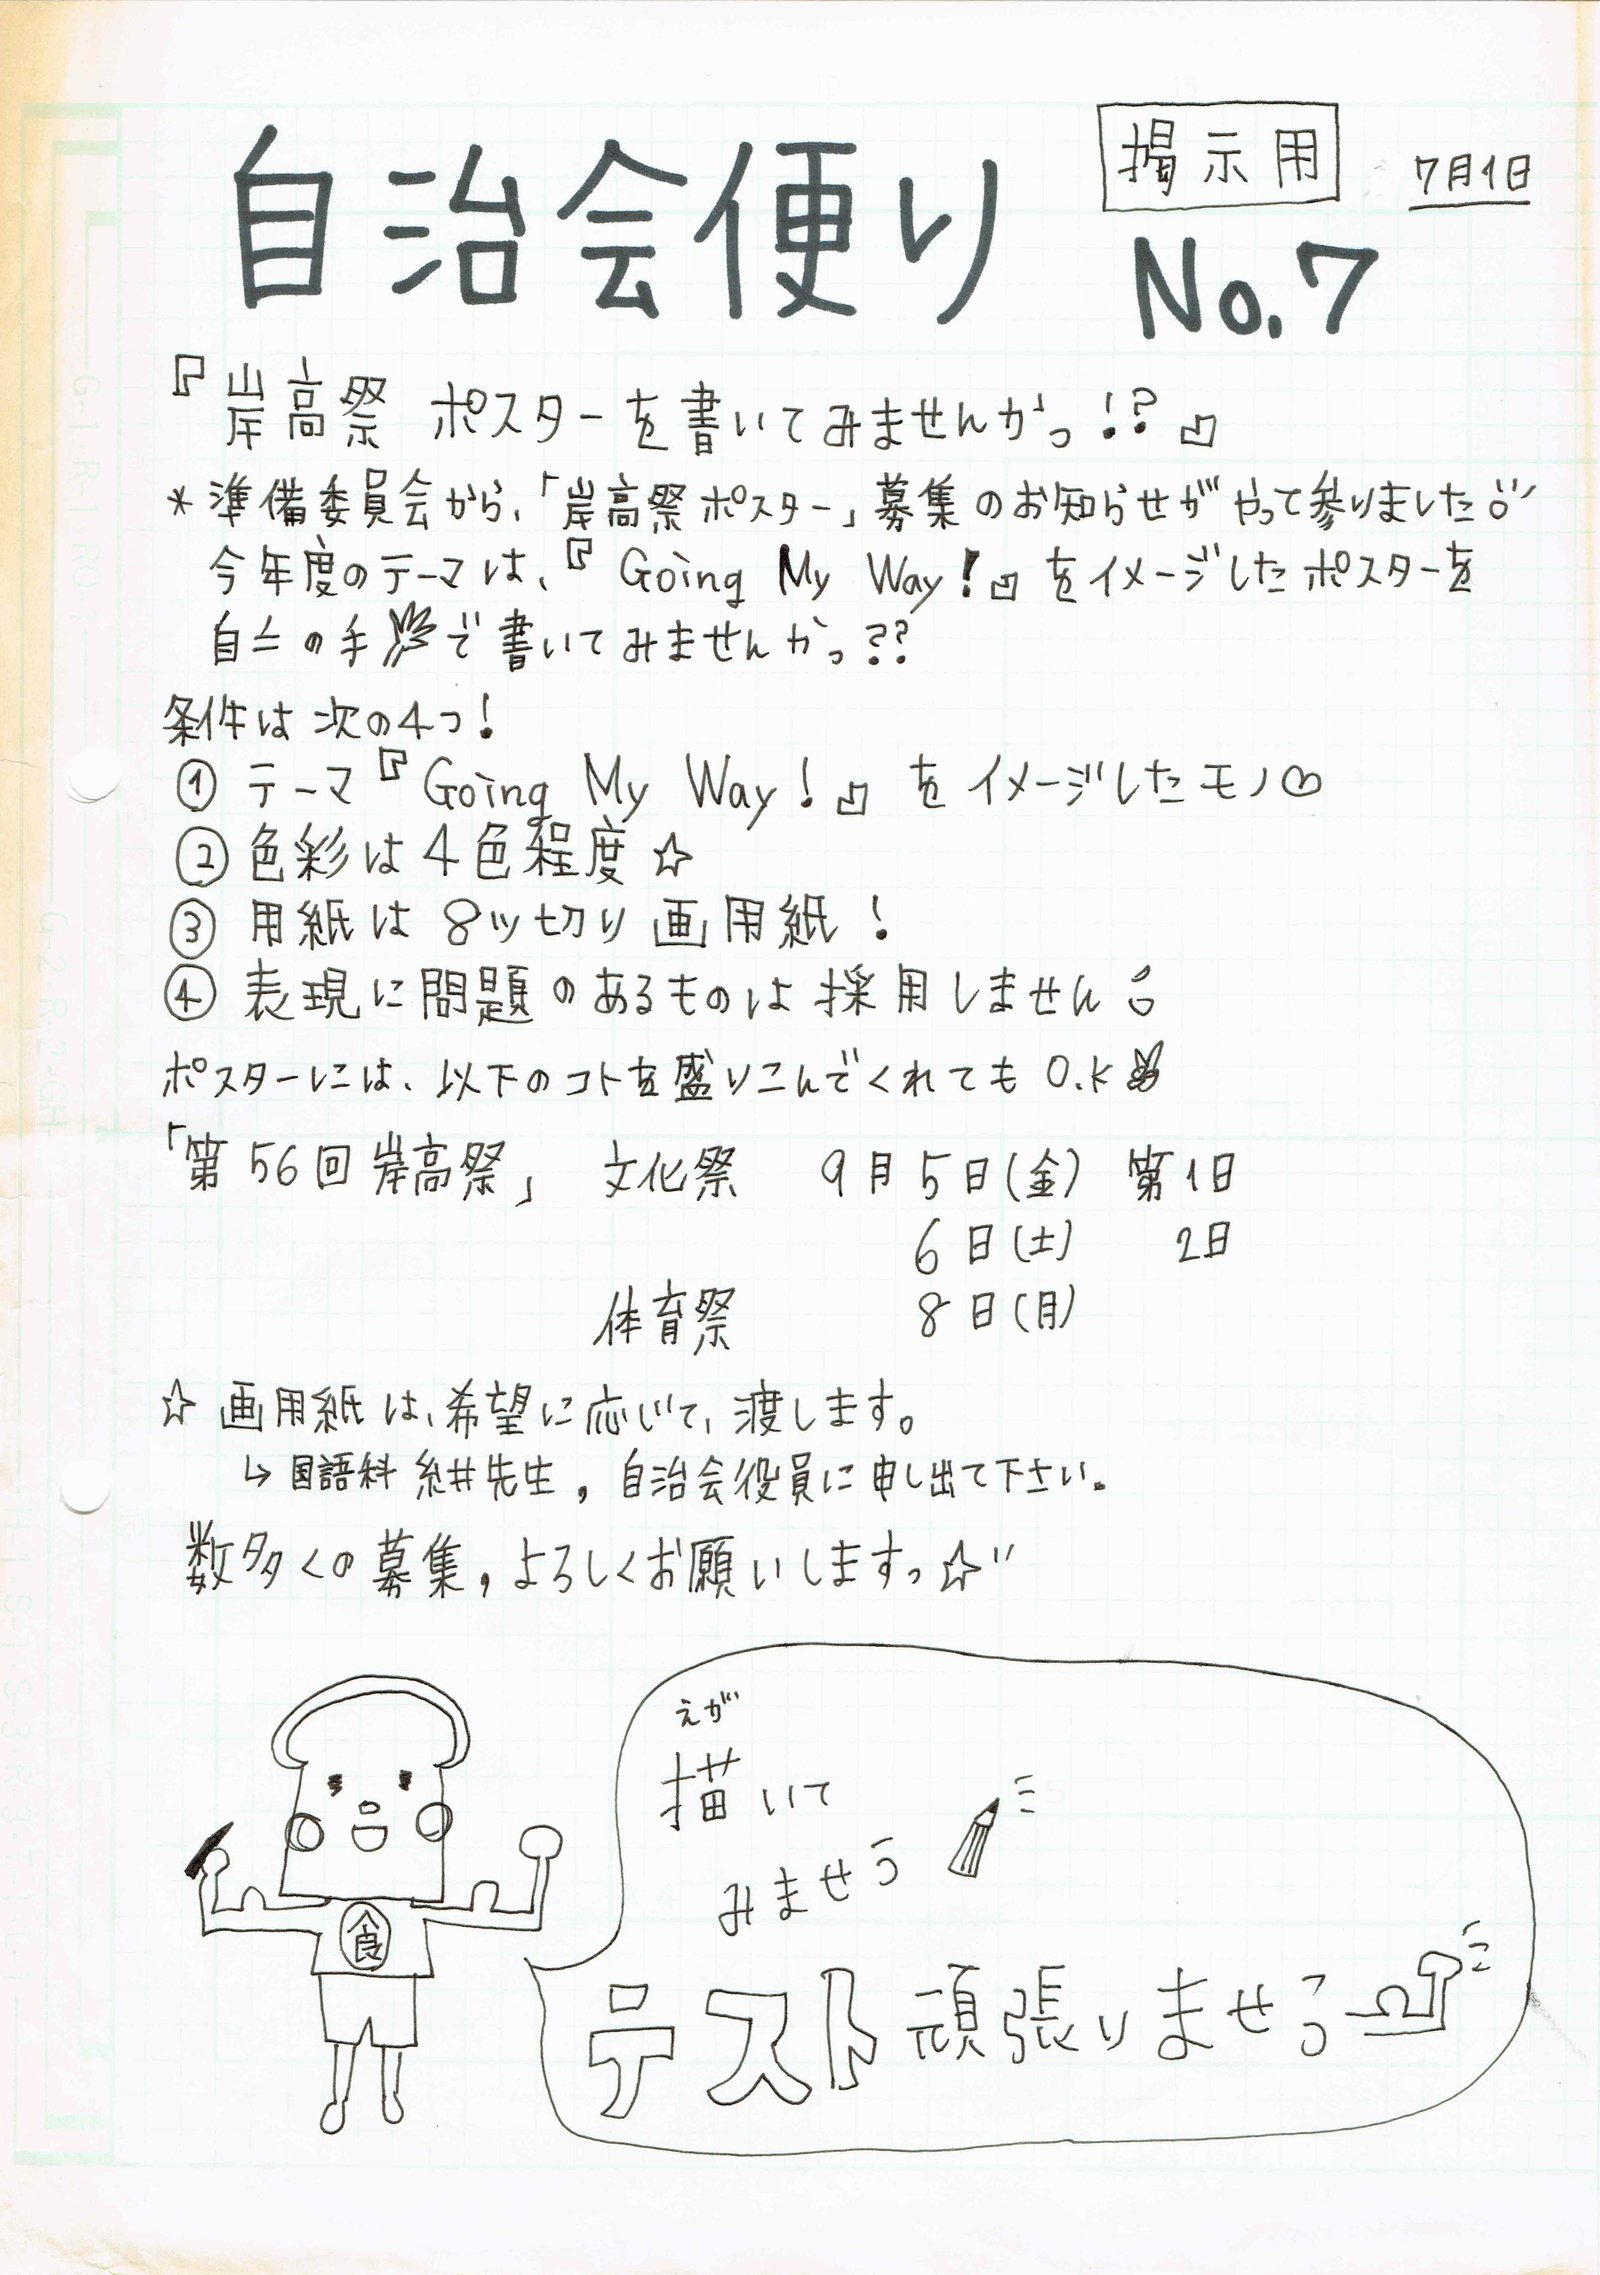 掲示用
7月1日
自治会便り
No.7
『岸高祭 ポスターを書いてみませんかっ!?』
*準備委員会から、「岸高祭ポスター」募集のお知らせがやって参りました
今年度のテーマは、『Going My Way!』をイメージしたポスターを
自らの手で書いてみませんかっ??
条件は次の4つ!
① テーマ『Going My Way!』をイメージしたモノ♡
② 色彩は4色程度☆
③ 用紙は8ツ切り画用紙!
④ 表現に問題のあるものは採用しません
ポスターには、以下のコトを盛りこんでくれてもO.K
「第56回岸高祭」 文化祭 9月5日(金) 第1日
6日(土) 2日
体育祭 8日(月)
☆ 画用紙は、希望に応じて、渡します。
↳ 国語科 糸井先生, 自治会役員に申し出て下さい.
数多くの募集, よろしくお願いしますっ☆
えが
描いて
みませう
食
テスト頑張りませう